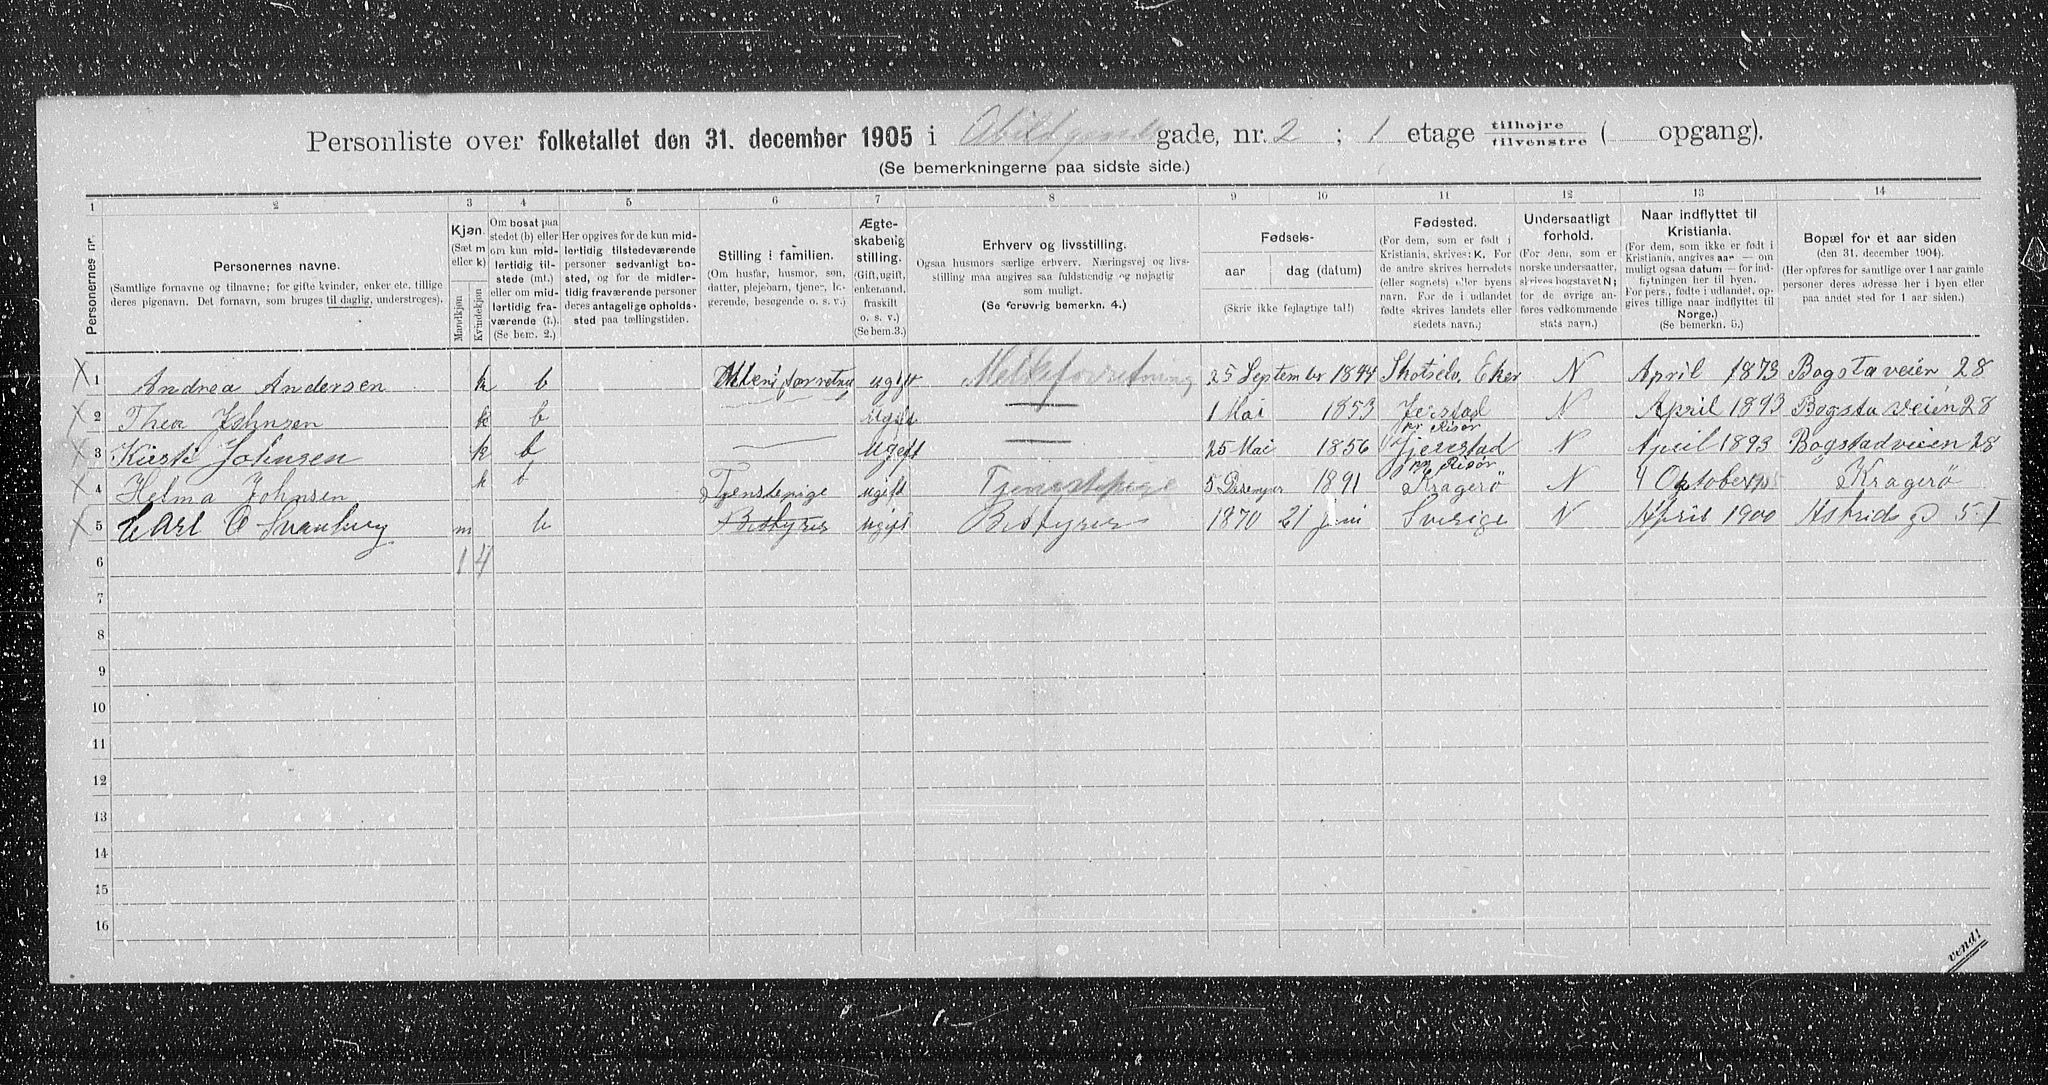 Personliste over folketallet den 31. december 1905 i gade, nr. 2 ; 1 etage tilhøjre/tilvenstre ( opgang).
(Se bemerkningerne paa sidste side.)
1 2 3 4 5 6 7 8 9 10 11 12 13 14
Personernes nr.
Personernes navne.
(Samtlige fornavne og tilnavne; for gifte kvinder, enker etc. tillige deres pigenavn. Det fornavn, som bruges til daglig, understreges).
Kjøn.
(Sæt m eller k)
Mandkjøn.
Kvindekjøn
Om bosat paa stedet (b) eller om kun midlertidig tilstede (mt.) eller om midlertidig fraværende (f.) (Se bem. 2.)
Her opgives for de kun midlertidig tilstedeværende personer sedvanligt bosted, og for de midlertidig fraværende personer deres antagelige opholdssted paa tællingstiden.
Stilling i familien.
(Om husfar, husmor, søn, datter, plejebarn, tjener, logerende, besøgende o. s. v.)
Ægteskabelig stilling.
(Gift, ugift, enkemand, fraskilt o. s. v.) (Se bem. 3.)
Erhverv og livsstilling.
Ogsaa husmors særlige erhverv. Næringsvej og livsstilling maa angives saa fuldstændig og nøjagtig som muligt.
(Se forøvrig bemerkn. 4.)
Fødsels-
aar dag (datum)
(Skriv ikke fejlagtige tal!)
Fødested.
(For dem, som er født i Kristiania, skrives: K. For de andre skrives herredets (eller sognets) eller byens navn. For de i udlandet fødte skrives landets eller stedets navn.)
Undersaatligt forhold.
(For dem, som er norske undersaatter, skrives bogstavet N; for de øvrige anføres vedkommende stats navn.)
Naar indflyttet til Kristiania.
(For dem, som ikke er født i Kristiania, angives aar — om muligt ogsaa datum — for indflytningen her til byen. For pers., fødte i udlandet, opgives tillige naar indflyttet til Norge.) (Se bemerkn. 5.)
Bopæl for et aar siden
(den 31. december 1904).
(Her opføres for samtlige over 1 aar gamle personer deres adresse her i byen eller paa andet sted for 1 aar siden.)
X 1 Andrea Andersen k b ugift Melkeforretning 25 September 1844 Skotselv. Eker N April 1873 Bogstaveien 28
X 2 Thea Johnsen k b Ugift — 1 Mai 1853 Jerstad pr Risør N April 1893 Bogsta veien 28
X 3 Kirsti Johnsen k b Ugift — 25 Mai 1856 Gjerestad pr Risør N April 1893 Bogstadveien 28
X 4 Helma Johnsen k b Tjenstepige ugift Tjenestepige 5 1891 Kragerø N 4 Oktober Kragerø
X 5 Carl O Svanberg m b Bestyrer ugift Bestyrer 1870 21 Juni Sverige N April 1900 Astrids gd 5 I
6 1 4
7
8
9
10
11
12
13
14
15
16
vend!